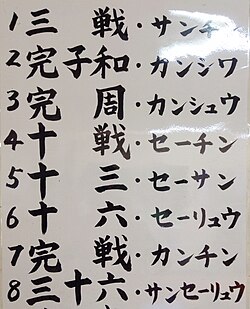 1 三戦・サンチン
2 完子和・カンシワ
3 完周・カンシュウ
4 十戦・セーチン
5 十三・セーサン
6 十六・セーリュウ
7 完戦・カンチン
8 三十六・サンセーリュウ